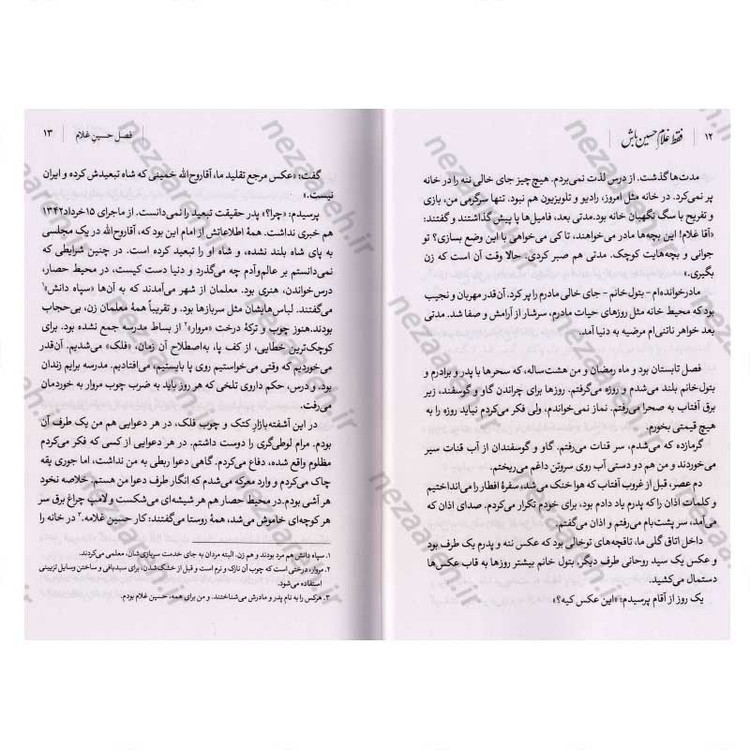 ۱۲ | فقط غلام حسین باش
مدت‌ها گذشت. از درس لذت نمی‌بردم. هیچ‌چیز جای خالی ننه را در خانه
پر نمی‌کرد. در خانه مثل امروز، رادیو و تلویزیون هم نبود. تنها سرگرمی من، بازی
و تفریح با سگ نگهبان خانه بود. مدتی بعد، فامیل‌ها پا پیش گذاشتند و گفتند:
«آقا غلام! این بچه‌ها مادر می‌خواهند، تا کی می‌خواهی با این وضع بسازی؟ تو
جوانی و بچه‌هایت کوچک. مدتی هم صبر کردی. حالا وقت آن است که زن
بگیری.»
مادرخوانده‌ام - بتول خانم - جای خالی مادرم را پر کرد. آن‌قدر مهربان و نجیب
بود که محیط خانه مثل روزهای حیات مادرم، سرشار از آرامش و صفا شد. مدتی
بعد خواهر ناتنی‌ام مرضیه به دنیا آمد.
فصل تابستان بود و ماه رمضان و من هشت‌ساله، که سحرها با پدر و برادرم و
بتول‌خانم بلند می‌شدم و روزه می‌گرفتم. روزها برای چراندن گاو و گوسفند، زیر
برق آفتاب به صحرا می‌رفتم. نماز نمی‌خواندم، ولی فکر می‌کردم نباید روزه را به
هیچ قیمتی بخورم.
گرمازده که می‌شدم، سر قنات می‌رفتم. گاو و گوسفندان از آب قنات سیر
می‌خوردند و من هم دو دستی آب روی سروتن داغم می‌ریختم.
دم عصر، قبل از غروب آفتاب که هوا خنک می‌شد، سفرهٔ افطار را می‌انداختیم
و کلمات اذان را که پدرم یاد داده بود، برای خودم تکرار می‌کردم. صدای اذان که
می‌آمد، سر پشت‌بام می‌رفتم و اذان می‌گفتم.
داخل اتاق گلی ما، تاقچه‌های توخالی بود که عکس ننه و پدرم یک طرف بود
و عکس یک سید روحانی طرف دیگر. بتول خانم بیشتر روزها به قاب عکس‌ها
دستمال می‌کشید.
یک روز از آقام پرسیدم: «این عکس کیه؟»
فصل حسین غلام | ۱۳
گفت: «عکس مرجع تقلید ما، آقاروح‌الله خمینی که شاه تبعیدش کرده و ایران
نیست.»
پرسیدم: «چرا؟» پدر حقیقت تبعید را نمی‌دانست. از ماجرای ۱۵خرداد۱۳۴۲
هم خبری نداشت. همهٔ اطلاعاتش از امام این بود که، آقاروح‌الله در یک مجلسی
به پای شاه بلند نشده، و شاه او را تبعید کرده است. در چنین شرایطی که
نمی‌دانستم بر عالم‌وآدم چه می‌گذرد و دنیا دست کیست، در محیط حصار،
درس‌خواندن، هنری بود. معلمان از شهر می‌آمدند که به آن‌ها «سپاه دانش»۱
می‌گفتند. لباس‌هایشان مثل سربازها بود. و تقریباً همهٔ معلمان زن، بی‌حجاب
بودند. هنوز چوب و ترکهٔ درخت «مروار»۲ از بساط مدرسه جمع نشده بود. برای
کوچک‌ترین خطایی، از کف پا، به‌اصطلاح آن زمان، «فلک» می‌شدیم. آن‌قدر
می‌خوردیم که وقتی می‌خواستیم روی پا بایستیم، می‌افتادیم. مدرسه برایم زندان
بود. و درس، حکم داروی تلخی که هر روز باید به ضرب چوب مروار به خوردمان
می‌رفت.
در این آشفته‌بازارِ کتک و چوب فلک، در هر دعوایی هم من یک طرف آن
بودم. مرام لوطی‌گری را دوست داشتم. در هر دعوایی از کسی که فکر می‌کردم
مظلوم واقع شده، دفاع می‌کردم. گاهی دعوا ربطی به من نداشت، اما جوری یقه
چاک می‌کردم و وارد معرکه می‌شدم که انگار طرف دعوا من هستم. خلاصه نخود
هر آشی بودم. در محیط حصار هم هر شیشه‌ای می‌شکست و لامپ چراغ برق سر
هر کوچه‌ای خاموش می‌شد، همهٔ روستا می‌گفتند: کار حسین غلامه.۳ در خانه را
۱. سپاه دانش هم مرد بودند و هم زن. البته مردان به جای خدمت سربازی‌شان، معلمی می‌کردند.
۲. مروار، درختی است که چوب آن نازک و نرم است و قبل از خشک‌شدن، برای سبدبافی و ساختن وسایل تزیینی
استفاده می‌شود.
۳. هرکس را به نام پدر و مادرش می‌شناختند. و من برای همه، حسین غلام بودم.
nezaareh.ir